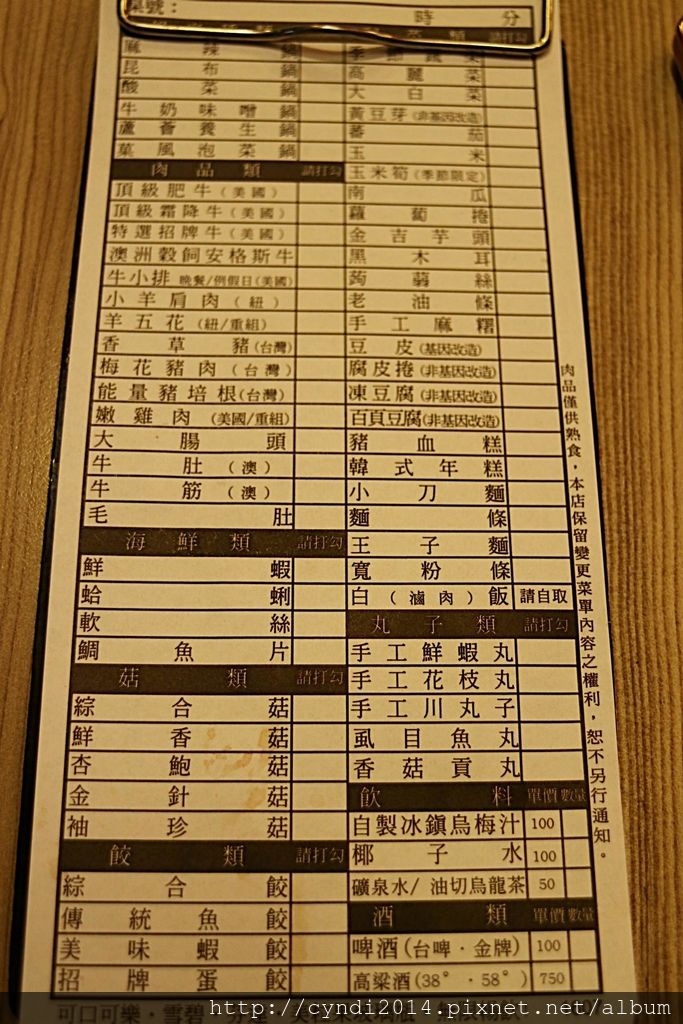 桌號：
時 分
麻辣鍋
昆布鍋
酸菜鍋
牛奶味噌鍋
蘆薈養生鍋
菓風泡菜鍋
肉品類 請打勾
頂級肥牛(美國)
頂級霜降牛(美國)
特選招牌牛(美國)
澳洲穀飼安格斯牛
牛小排 晚餐/例假日(美國)
小羊肩肉(紐)
羊五花(紐/重組)
香草豬(台灣)
梅花豬肉(台灣)
能量豬培根(台灣)
嫩雞肉(美國/重組)
大腸頭
牛肚(澳)
牛筋(澳)
毛肚
海鮮類 請打勾
鮮蝦
蛤蜊
軟絲
鯛魚片
菇類 請打勾
綜合菇
鮮香菇
杏鮑菇
金針菇
袖珍菇
餃類 請打勾
綜合餃
傳統魚餃
美味蝦餃
招牌蛋餃
類 請打勾
季節蔬菜
高麗菜
大白菜
黃豆芽(非基因改造)
蕃茄
玉米
玉米筍(季節限定)
南瓜
蘿蔔捲
金吉芋頭
黑木耳
蒟蒻絲
老油條
手工麻糬
豆皮(基因改造)
腐皮捲(非基因改造)
凍豆腐(非基因改造)
百頁豆腐(非基因改造)
豬血糕
韓式年糕
小刀麵
麵條
王子麵
寬粉條
白(滷肉)飯 請自取
丸子類 請打勾
手工鮮蝦丸
手工花枝丸
手工川丸子
虱目魚丸
香菇貢丸
飲料 單價 數量
自製冰鎮烏梅汁 100
椰子水 100
礦泉水/油切烏龍茶 50
酒類 單價 數量
啤酒(台啤・金牌) 100
高粱酒(38°・58°) 750
肉品僅供熟食，本店保留變更菜單內容之權利，恕不另行通知。
可口可樂・雪碧
http://cyndi2014.pixnet.net/album